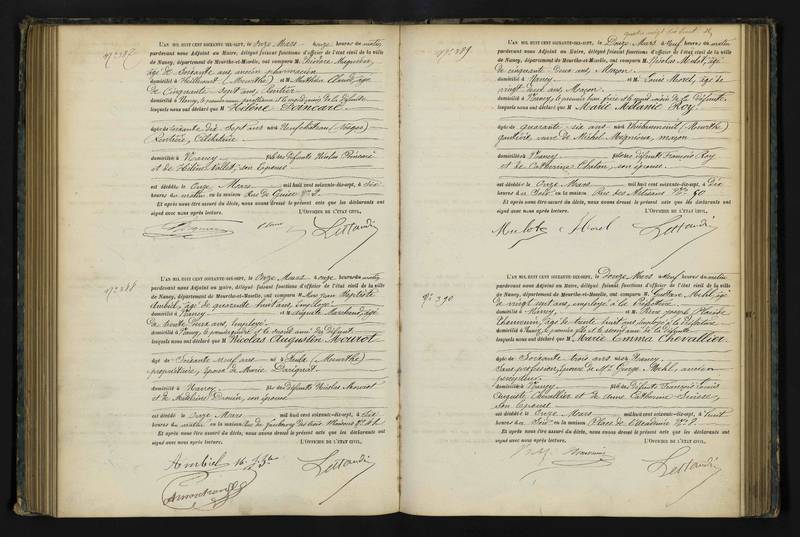 N° 387
L'AN MIL HUIT CENT SOIXANTE-DIX-SEPT, le Onze Mars à onze heures du matin
pardevant nous Adjoint au Maire, délégué faisant fonctions d'officier de l'état civil de la ville
de Nancy, département de Meurthe-et-Moselle, ont comparu M. Théodore
âgé de Soixante ans, ancien pharmacien
domicilié à (Meurthe) et M. Matthieu âgé
de Cinquante Sept ans, Rentier
domicilié à Nancy, le premier et le second de la défunte
lesquels nous ont déclaré que Hélène Poincaré
âgée de Soixante dix Sept ans née à Neufchâteau (Vosges)
Rentière, Célibataire
domiciliée à Nancy fille des défunts Nicolas Poincaré
et de Hélène son épouse
est décédée le Onze Mars mil huit cent soixante-dix-sept, à Six
heures du matin en la maison Rue de Guise N° 3
Et après nous être assuré du décès, nous avons dressé le présent acte que les déclarants ont
signé avec nous après lecture. L'OFFICIER DE L'ÉTAT CIVIL,
N° 388
L'AN MIL HUIT CENT SOIXANTE-DIX-SEPT, le Onze Mars à onze heures du matin
pardevant nous Adjoint au Maire, délégué faisant fonctions d'officier de l'état civil de la ville
de Nancy, département de Meurthe-et-Moselle, ont comparu M. Jean Baptiste
Ambiel, âgé de quarante huit ans, Employé
domicilié à Nancy et M. Auguste Marchand, âgé
de trente deux ans, employé
domicilié à Nancy, le premier gendre et le second ami du défunt
lesquels nous ont déclaré que Nicolas Augustin Mourot
âgé de Soixante neuf ans né à (Meurthe)
propriétaire, époux de Marie
domicilié à Nancy fils des défunts Nicolas Mourot
et de Madeleine son épouse
est décédé le Onze Mars mil huit cent soixante-dix-sept, à Six
heures du matin en la maison Rue du faubourg des trois Maisons N°
Et après nous être assuré du décès, nous avons dressé le présent acte que les déclarants ont
signé avec nous après lecture. L'OFFICIER DE L'ÉTAT CIVIL,
Ambiel
quatre vingt dix huit
N° 389
L'AN MIL HUIT CENT SOIXANTE-DIX-SEPT, le Douze Mars à Neuf heures du matin
pardevant nous Adjoint au Maire, délégué faisant fonctions d'officier de l'état civil de la ville
de Nancy, département de Meurthe-et-Moselle, ont comparu M. Nicolas Mulot, âgé
de cinquante deux ans, Maçon
domicilié à Nancy et M. Louis Morel, âgé de
vingt deux ans Maçon
domicilié à Nancy, le premier beau frère et le second voisin de la défunte
lesquels nous ont déclaré que Marie Mélanie Roy
âgée de quarante six ans née à (Meurthe)
veuve de Michel maçon
domiciliée à Nancy fille des défunts François Roy
et de Catherine son épouse
est décédée le Onze Mars mil huit cent soixante-dix-sept, à Dix
heures du Soir en la maison Rue des N° 60
Et après nous être assuré du décès, nous avons dressé le présent acte que les déclarants ont
signé avec nous après lecture. L'OFFICIER DE L'ÉTAT CIVIL,
Mulot Morel
N° 390
L'AN MIL HUIT CENT SOIXANTE-DIX-SEPT, le Douze Mars à Neuf heures du matin
pardevant nous Adjoint au Maire, délégué faisant fonctions d'officier de l'état civil de la ville
de Nancy, département de Meurthe-et-Moselle, ont comparu M. Gustave Mehl, âgé
de vingt huit ans, employé à la Préfecture
domicilié à Nancy et M. Joseph
âgé de trente huit ans, employé à la Préfecture
domicilié à Nancy, le premier fils et le second ami de la défunte
lesquels nous ont déclaré que Marie Emma Chevallier
âgée de Soixante trois ans née à Nancy
Sans profession, épouse de M. George Mehl, ancien
domiciliée à Nancy fille des défunts François Louis
Auguste Chevallier et de Anne Catherine
son épouse
est décédée le Onze Mars mil huit cent soixante-dix-sept, à huit
heures du Soir en la maison Place de l'académie N°
Et après nous être assuré du décès, nous avons dressé le présent acte que les déclarants ont
signé avec nous après lecture. L'OFFICIER DE L'ÉTAT CIVIL,